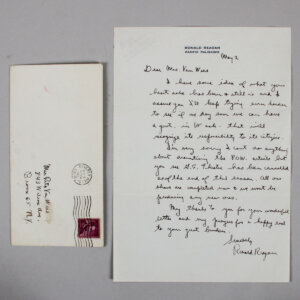 RONALD REAGAN
PACIFIC PALISADES
May 2
Dear Mrs. Van Wess
I have some idea of what your
has been & still is and I
assure you I'll keep trying even harder
to see if we day soon we can have
a govt. in Wash. that will
recognize its responsibility to its citizens.
I'm very sorry I can't do anything
about the P.O.W. article but
you see G.E. Theatre has been cancelled
as of the end of this season. All our
shows are completed now & we won't be
filming any new ones.
My thanks to you for your wonderful
letter and my prayers for a happy end
to your great burden.
Sincerely
Ronald Reagan
Mrs. Rita Van Wess
Bronx 65 N.Y.